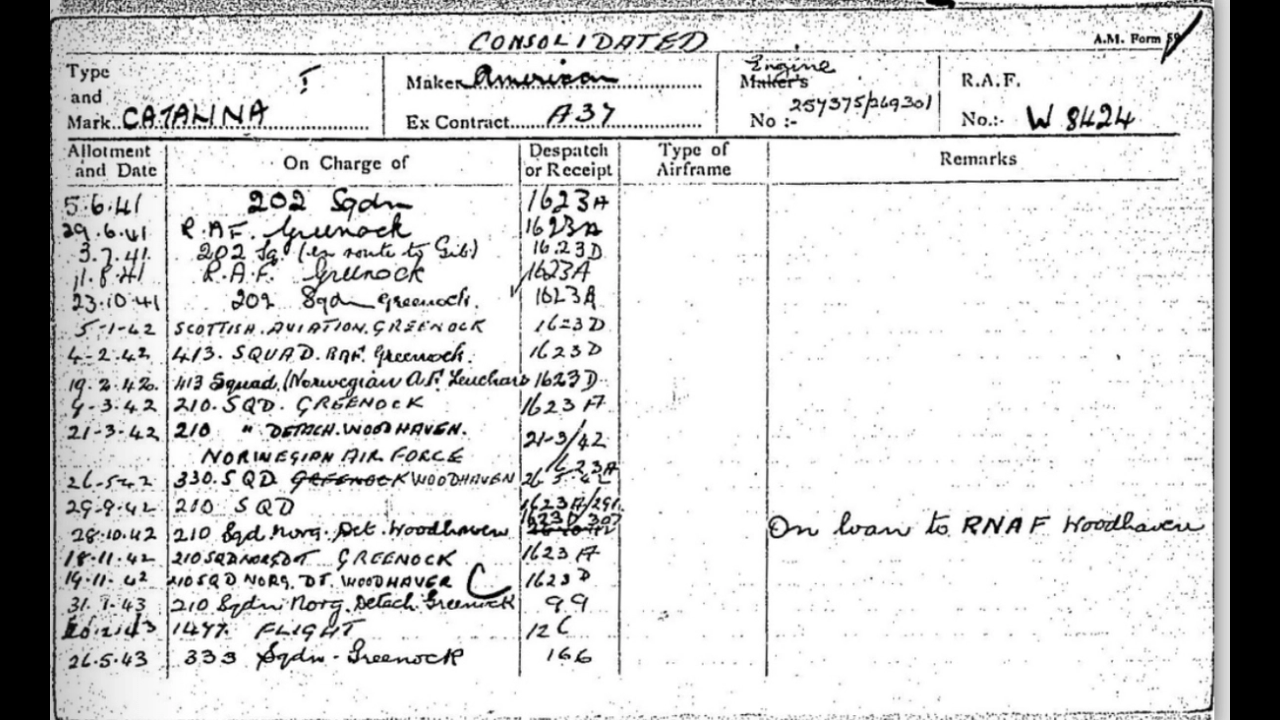 CONSOLIDATED
A.M. Form 58
Type and Mark CATALINA I
Maker American
Ex Contract A37
Engine Maker's No :- 257375/269301
R.A.F. No.:- W 8424
Allotment and Date On Charge of Despatch or Receipt Type of Airframe Remarks
5.6.41 202 Sqdn 1623A
29.6.41 R.A.F. Greenock 1623A
3.7.41 202 Sq. (en route to Gib) 1623D
11.8.41 R.A.F. Greenock 1623A
23.10.41 209 Sqdn Greenock. 1623A
5-1-42 SCOTTISH. AVIATION. GREENOCK 1623D
4-2-42 413. SQUAD. RAF. Greenock. 1623D
19.2.42. 413 Squad. (Norwegian A.F. Leuchars 1623D
9-3-42 210. SQD. GREENOCK 1623A
21-3-42 210 " DETACH. WOODHAVEN. 21-3/42
NORWEGIAN AIR FORCE 1623A
26-5-42 330. SQD GREENOCK WOODHAVEN 26-5-42
29-9-42 210 SQD 1623A/291
28.10.42 210 Sqd Norg. Det. Woodhaven 1623D 307 On loan to RNAF Woodhaven
18-11-42 210 SQD NORG DT GREENOCK 1623A
19-11-42 210 SQD NORG. DT. WOODHAVEN 1623D
31.1.43 210 Sqdn Norg. Detach. Greenock 99
1477. FLIGHT 126
26.5.43 333 Sqdn - Greenock 166